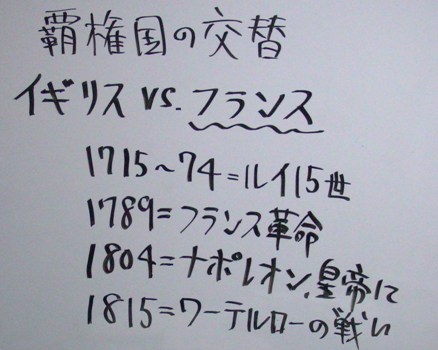 覇権国の交替
イギリス vs. フランス
1715～74=ルイ15世
1789=フランス革命
1804=ナポレオン、皇帝に
1815=ワーテルローの戦い